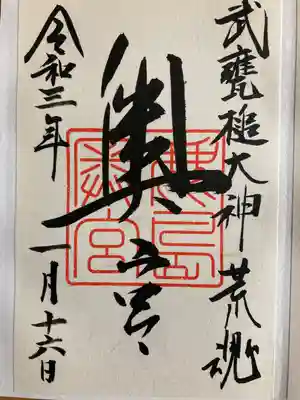 武甕槌大神 荒魂
奥宮
鹿島
奥宮
令和三年 一月十六日